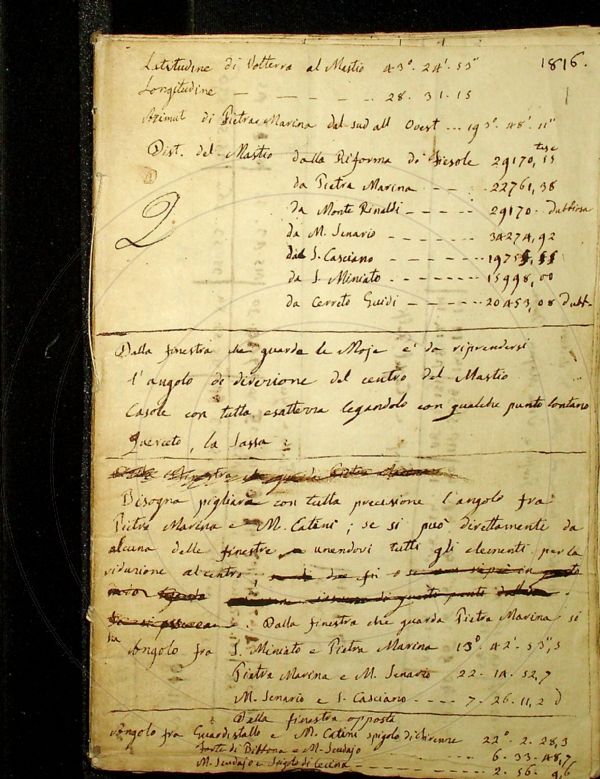 1816.
Latitudine di Volterra al Mastio 43°. 24'. 53"
Longitudine — — — — — . . 28. 31. 15
Azimut di Pietra Marina dal sud all Ovest ... 193°. 48'. 11"
Dist. del Mastio dalla Riforma di Fiesole 29170,15 tese
da Pietra Marina - - - - 22761,38
2
da Monte Rinaldi - - - - - 29170. dubbiosa
da M. Senario - - - - - - 34274,92
da S. Casciano - - - - - -
da S. Miniato - - - - - - 15998,00
da Cerreto Guidi - - - - - 20453,08 dubb.
Dalla finestra che guarda le Moje e' da riprendersi
l'angolo di direzione del centro del Mastio
Casole con tutta esattezza legandolo con qualche punto lontano
Querceto, la Sassa
Bisogna pigliare con tutta precisione l'angolo fra
Pietra Marina e M. Catini; se si può direttamente da
alcuna delle finestre unendovi tutti gli elementi per la
riduzione al centro
Dalla finestra che guarda Pietra Marina si
ha Angolo fra S. Miniato e Pietra Marina 13°. 42'. 53",5
Pietra Marina e M. Senario 22. 14. 52,7
M. Senario e S. Casciano - - - - 7. 26. 11,2
Dalla finestra opposta
Angolo fra Guardistallo e M. Catini spigolo di 22°. 2. 28,3
Forte di Bibbona e M. Scudajo - - - - 6. 33. 48,7
M. Scudajo e di Cecina - - - - 2. 56. 9,6